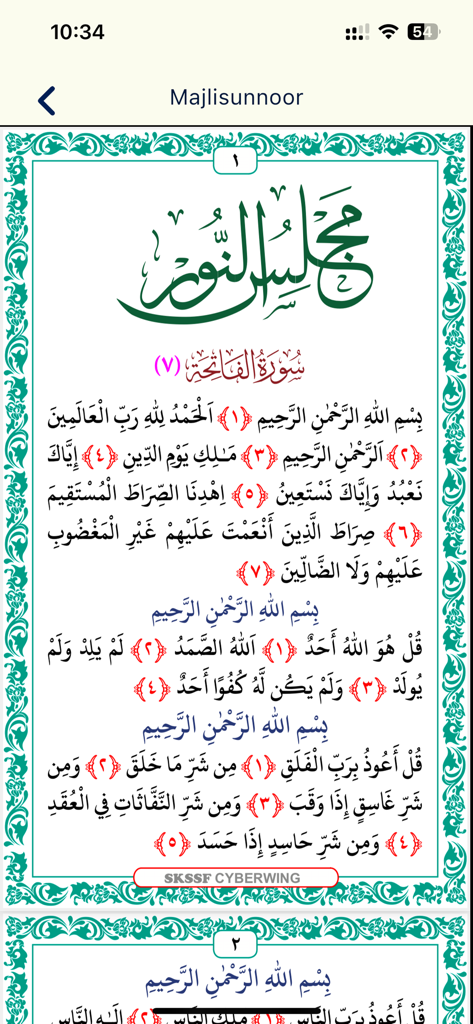 10:34
54
Majlisunnoor
١
مجلس النور
سُورَةُ الْفَاتِحَة (٧)
بِسْمِ اللهِ الرَّحْمٰنِ الرَّحِيمِ ﴿١﴾ اَلْحَمْدُ لِلهِ رَبِّ الْعَالَمِينَ
﴿٢﴾ اَلرَّحْمٰنِ الرَّحِيمِ ﴿٣﴾ مَـٰلِكِ يَوْمِ الدِّينِ ﴿٤﴾ إِيَّاكَ
نَعْبُدُ وَإِيَّاكَ نَسْتَعِينُ ﴿٥﴾ اِهْدِنَا الصِّرَاطَ الْمُسْتَقِيمَ
﴿٦﴾ صِرَاطَ الَّذِينَ أَنْعَمْتَ عَلَيْهِمْ غَيْرِ الْمَغْضُوبِ
عَلَيْهِمْ وَلَا الضَّالِّينَ ﴿٧﴾
بِسْمِ اللهِ الرَّحْمٰنِ الرَّحِيمِ
قُلْ هُوَ اللهُ أَحَدٌ ﴿١﴾ اَللهُ الصَّمَدُ ﴿٢﴾ لَمْ يَلِدْ وَلَمْ
يُولَدْ ﴿٣﴾ وَلَمْ يَكُن لَّهُ كُفُوًا أَحَدٌ ﴿٤﴾
بِسْمِ اللهِ الرَّحْمٰنِ الرَّحِيمِ
قُلْ أَعُوذُ بِرَبِّ الْفَلَقِ ﴿١﴾ مِن شَرِّ مَا خَلَقَ ﴿٢﴾ وَمِن
شَرِّ غَاسِقٍ إِذَا وَقَبَ ﴿٣﴾ وَمِن شَرِّ النَّفَّاثَاتِ فِي الْعُقَدِ
﴿٤﴾ وَمِن شَرِّ حَاسِدٍ إِذَا حَسَدَ ﴿٥﴾
SKSSF CYBERWING
٢
بِسْمِ اللهِ الرَّحْمٰنِ الرَّحِيمِ
قُلْ أَعُوذُ بِرَبِّ النَّاسِ ﴿١﴾ مَلِكِ النَّاسِ ﴿٢﴾ إِلَـٰهِ النَّاسِ